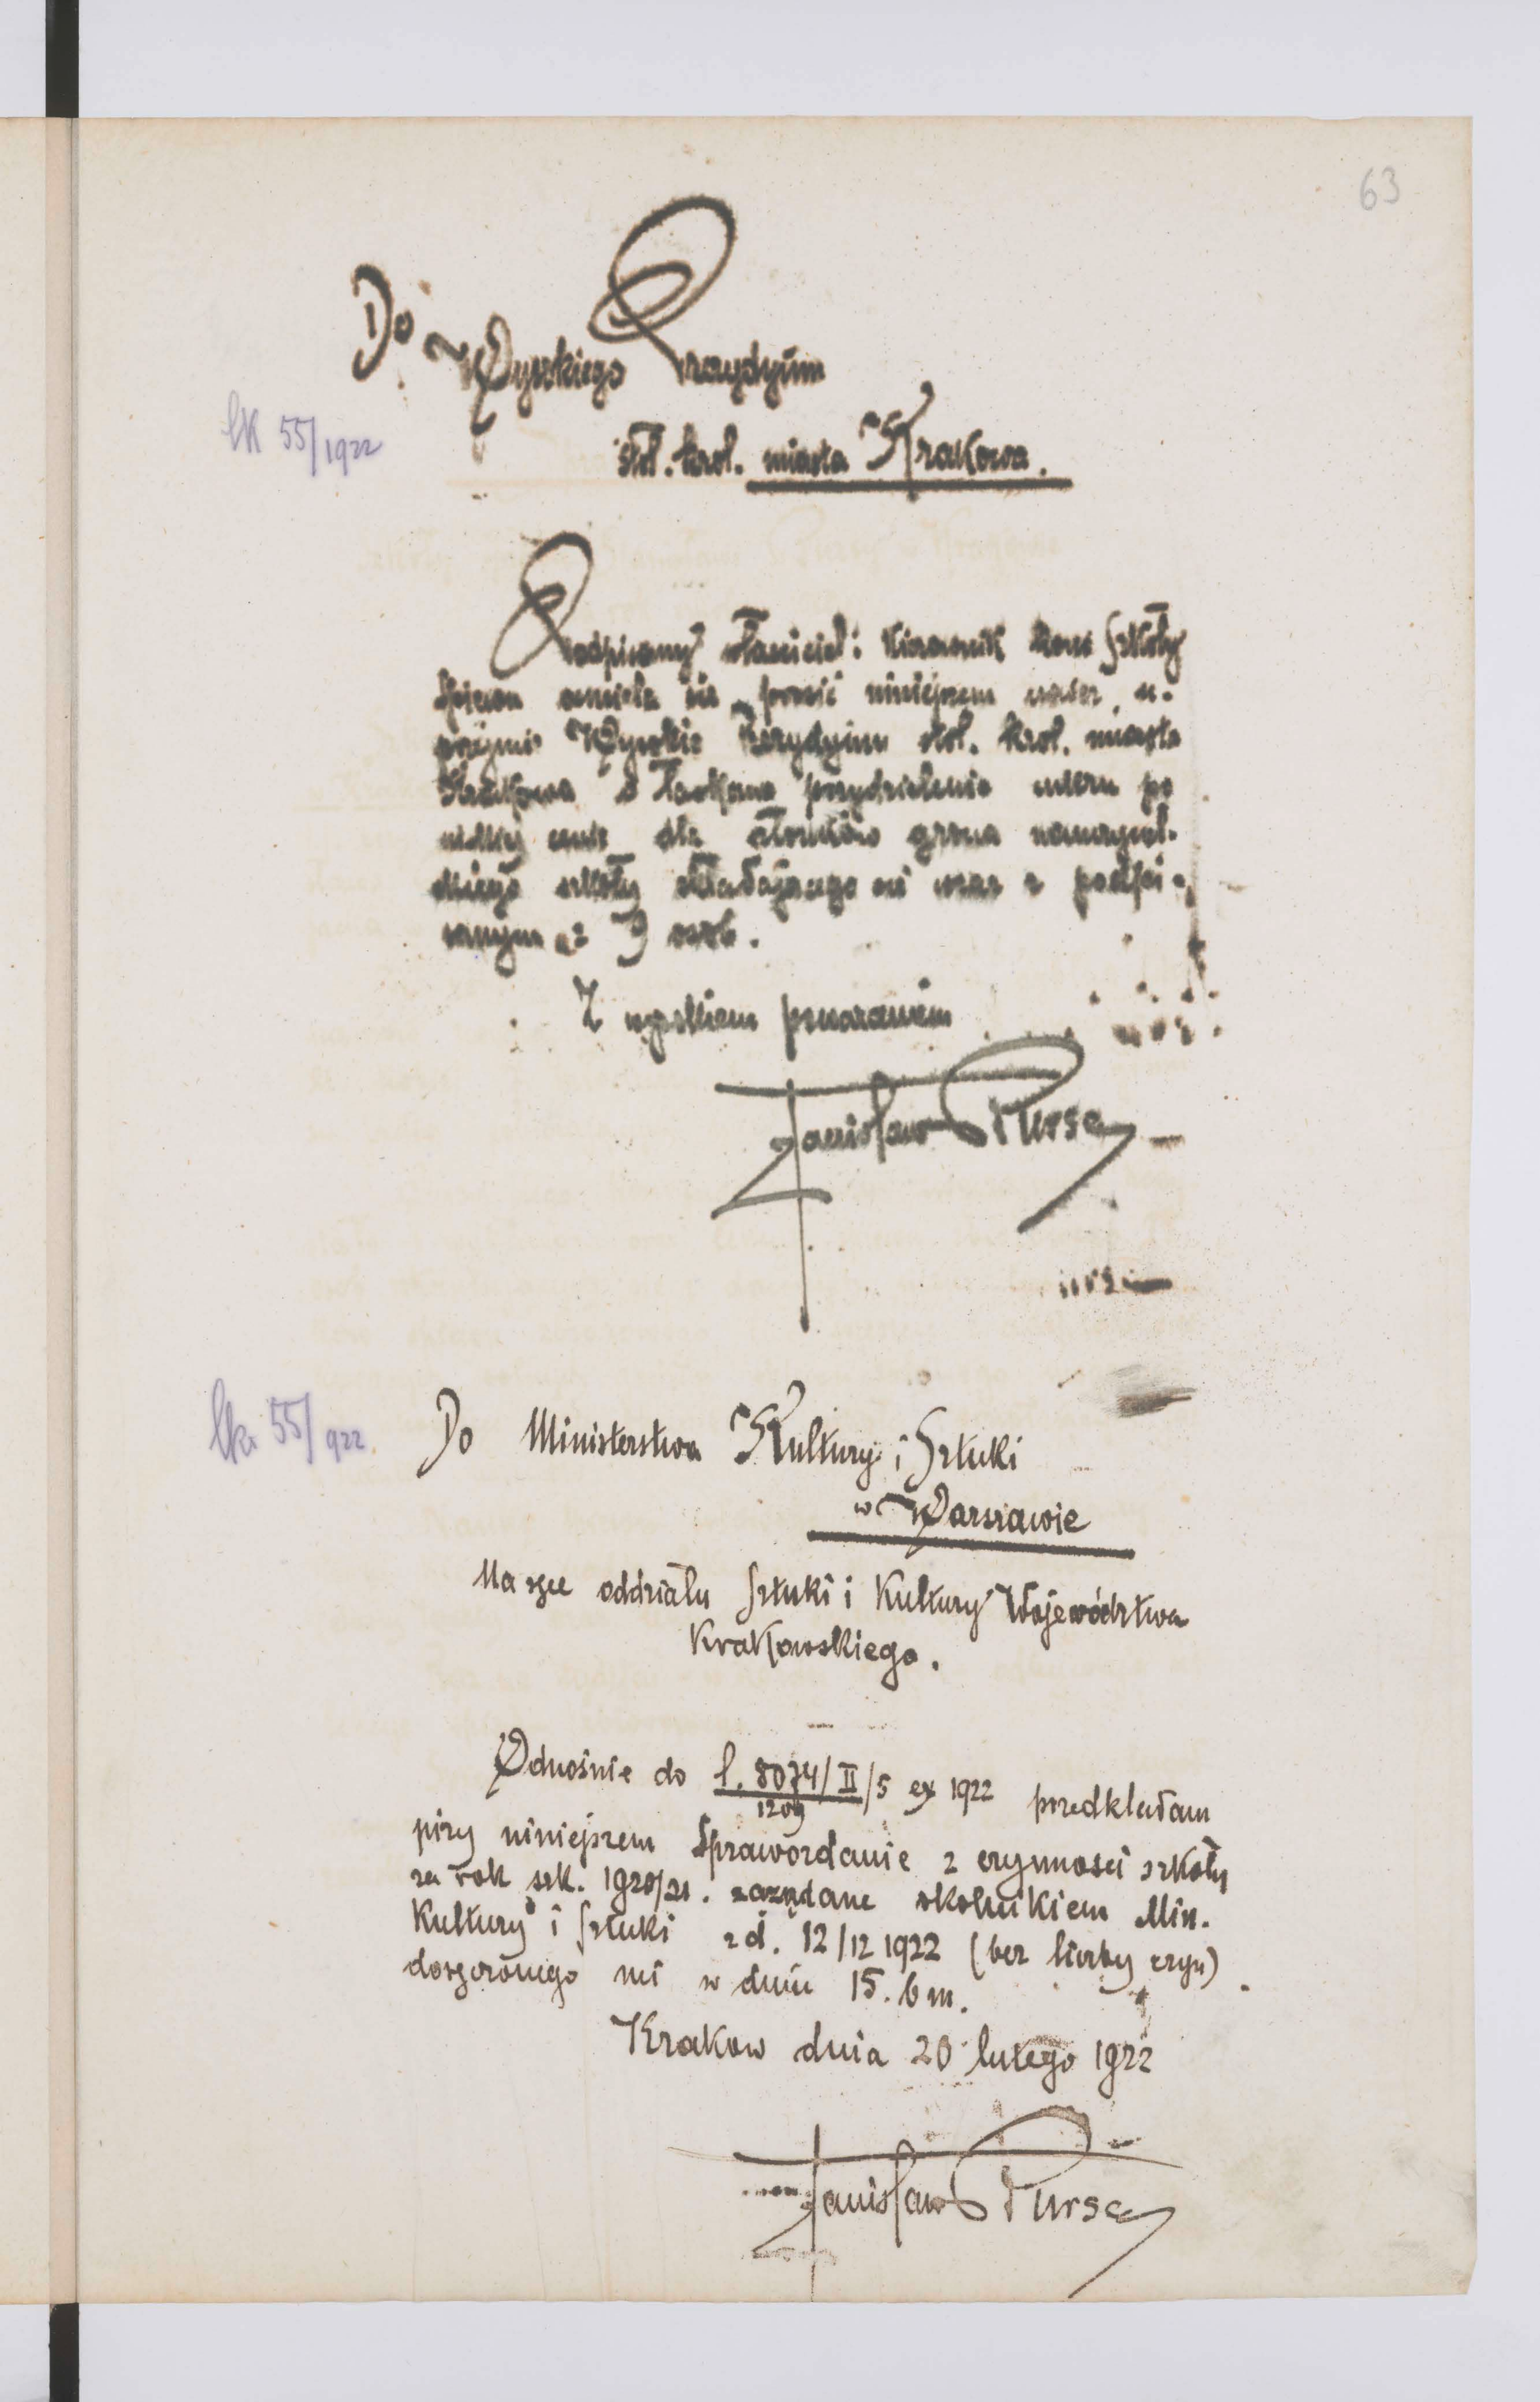 63
Do
Wysokiego Prezydyum
lk 55/1922
stoł. król. miasta Krakowa.
Podpisany właściciel i kierownik konc Szkoły
śpiewu ośmiela się prosić niniejszem u-
przejmie Wysokie Prezydyum stoł. król. miasta
Krakowa o łaskawe przydzielenie cukru po
niskiej cenie dla członków grona nauczyciel-
skiego szkoły składającego się wraz z podpi-
sanym z 9 osób.
Z wysokiem poważaniem
Stanisław Bursa
lk. 55/922
Do Ministerstwa Kultury i Sztuki
w Warszawie
Na ręce oddziału Sztuki i Kultury Województwa
Krakowskiego.
Odnośnie do l. 8074/II/5 ex 1922 przedkładam
1209
przy niniejszem Sprawozdanie z czynności szkoły
za rok szk. 1920/21. zażądane okólnikiem Min.
Kultury i Sztuki z d. 12/12 1922 (bez liczby czyn)
doręczonego mi w dniu 15. b m.
Krakow dnia 20 lutego 1922
Stanisław Bursa